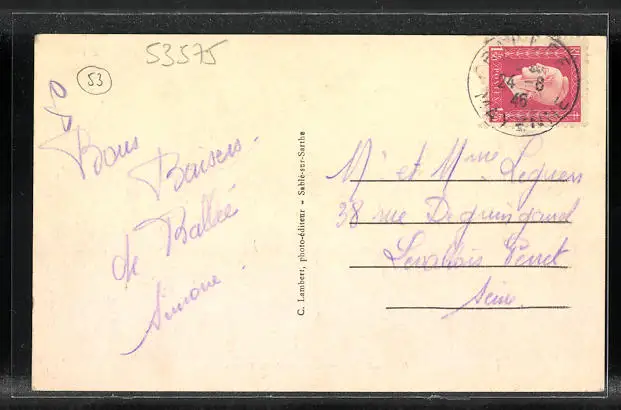 53575
53
Bons
Baisers
de Ballée
Simone
C. Lambert, photo-éditeur - Sablé-sur-Sarthe
24 -8
46
Mr et Mme Leguen
38 rue Deguingand
Levallois Perret
Seine